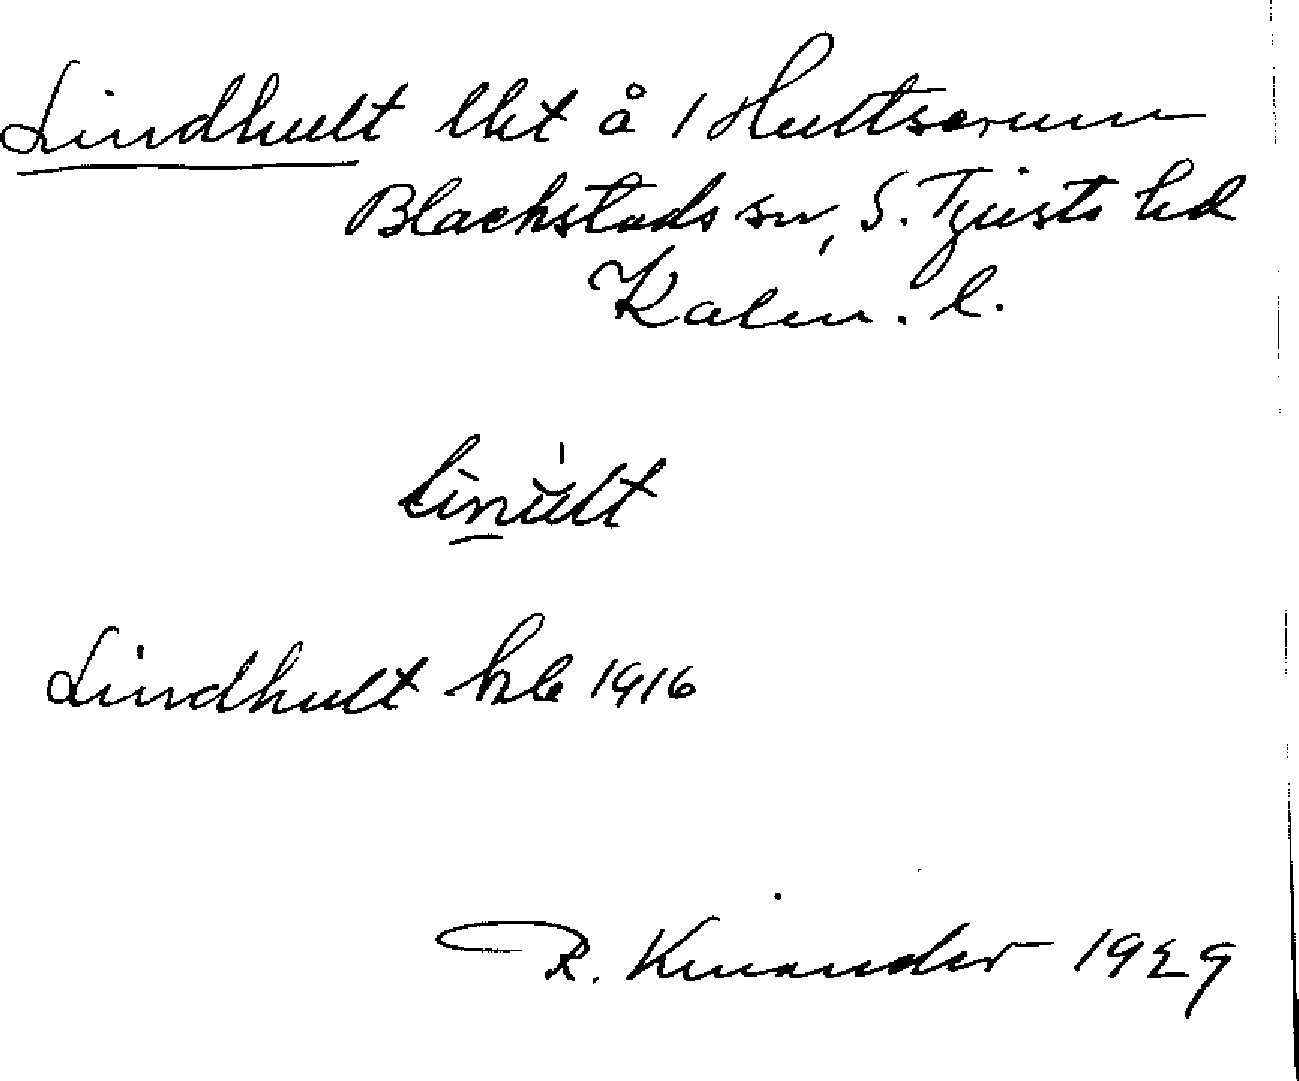 Lindhult lht å 1 Hultserum
Blackstads sn, S. Tjusts hd
Kalm. l.
Lindhult hbl 1916
R. Kinander 1929